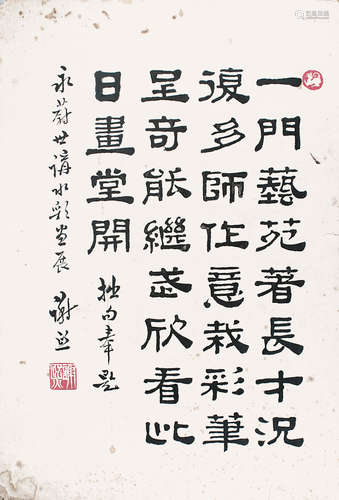 一門藝苑著長才況
復多師作意栽彩筆
呈奇能繼武欣看此
日畫堂開
拙句奉題
永蔚世講水彩畫展 謝